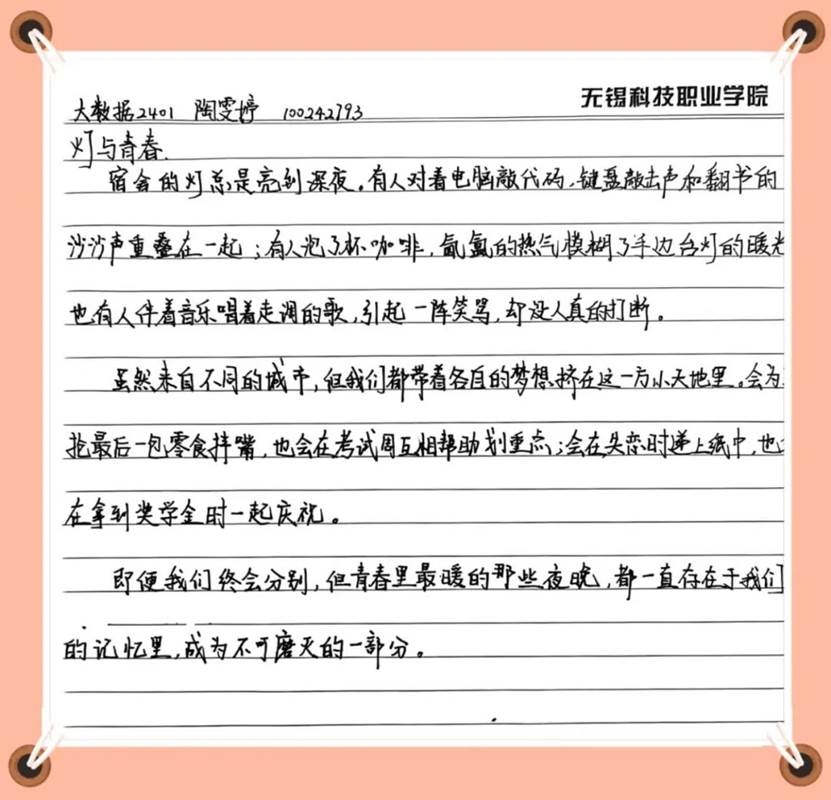 无锡科技职业学院
大数据2401 陶雯婷 100242793
灯与青春.
宿舍的灯总是亮到深夜。有人对着电脑敲代码,键盘敲击声和翻书的
沙沙声重叠在一起;有人泡了杯咖啡,氤氲的热气模糊了手边台灯的暖光
也有人伴着音乐唱着走调的歌,引起一阵笑骂,却没人真的打断。
虽然来自不同的城市,但我们都带着各自的梦想挤在这一方小天地里。会为
抢最后一包零食拌嘴,也会在考试周互相帮助划重点;会在失恋时递上纸巾,也
在拿到奖学金时一起庆祝。
即便我们终会分别,但青春里最暖的那些夜晚,都一直存在于我们
的记忆里,成为不可磨灭的一部分。